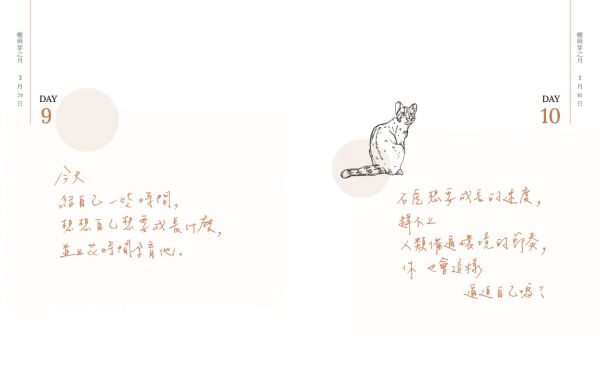 樹萌芽之月 3月29日
DAY
9
今天
給自己一些時間,
想想自己想要成長什麼,
並且花時間孕育他。
樹萌芽之月 3月30日
DAY
10
石虎想要成長的速度,
趕不上
人類催逼環境的節奏,
你也會這樣
逼迫自己嗎?